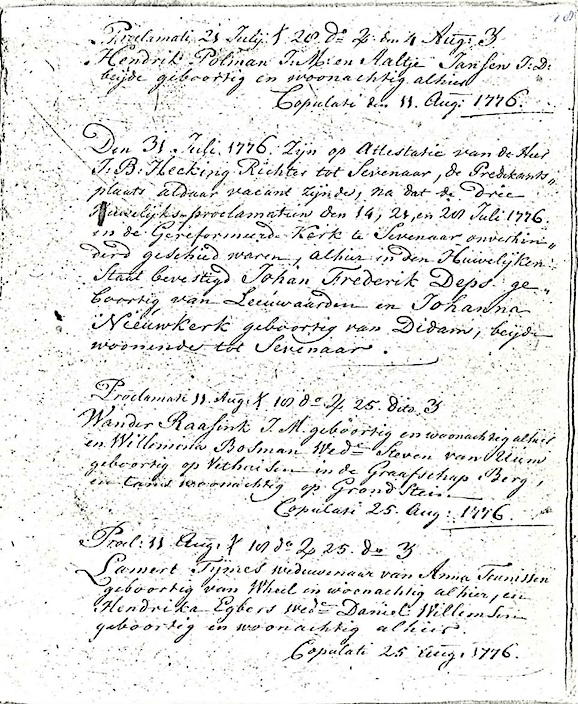 Proclamati 21 Julij 1 28 do 2 den 4 Aug: 3
Hendrik Polman J: M: en Aaltje Jansen J: D:
beijde geboortig en woonachtig alhier
Copulati den 11 Aug: 1776.
Den 31 Juli 1776. Zijn op Attestatie van de Heer
J: B: Hecking Richter tot Sevenaar, de Predikants
plaats aldaar vacant zijnde, na dat de Drie
Huwelijks-proclamatien den 14, 21, en 28 Juli 1776.
in de Gereformeerde Kerk te Sevenaar onverhin„
derd geschied waren, alhier in den Huwelijken
Staat bevestigd Johan Frederik Deps ge„
boortig van Leeuwaarden en Johanna
Nieuwkerk geboortig van Didam, beijde
woonende tot Sevenaar.
Proclamati 11 Aug: 1 18 do 2 25. dito. 3
Wander Raasink J. M. geboortig en woonachtig alhier
en Willemina Bosman Wede Steven van
geboortig op Vethuisen in de Graafschap Berg,
en woonachtig op
Copulati 25. Aug: 1776.
Procl: 11 Aug: 1 18 do 2 25. do 3
Lamert weduwenaar van Anna Teunissen
geboortig van Wheel en woonachtig alhier, en
Hendrika Egbers Wede Daniel Willemsen
geboortig en woonachtig alhier.
Copulati 25 Aug: 1776.